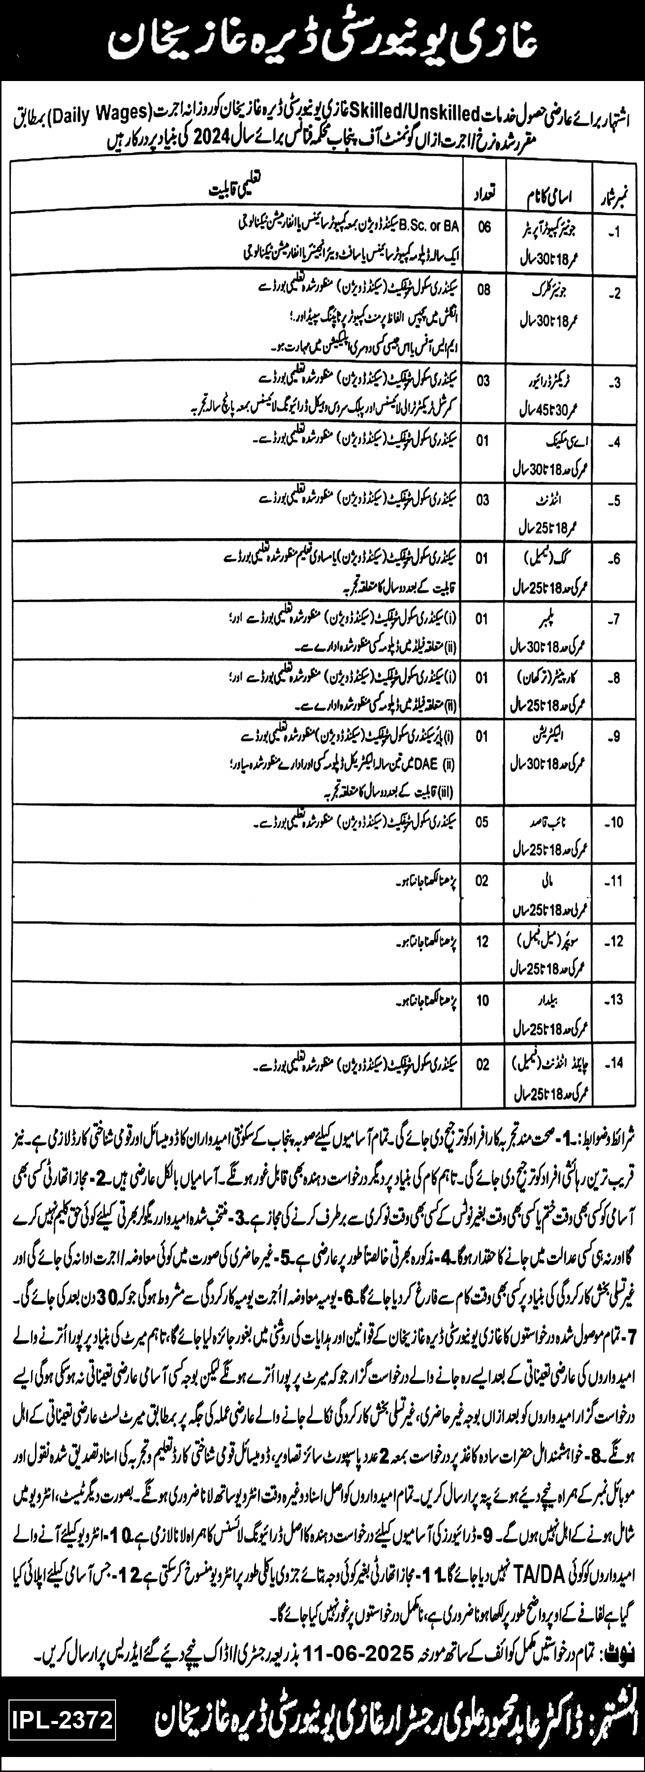 غازی یونیورسٹی ڈیرہ غازیخان
اشتہار برائے عارضی حصول خدمات Skilled/Unskilled غازی یونیورسٹی ڈیرہ غازیخان کو روزانہ اجرت (Daily Wages) بمطابق
مقرر شدہ نرخ/اجرت ازاں گورنمنٹ آف پنجاب محکمہ فنانس برائے سال 2024 کی بنیاد پر درکار ہیں
نمبر شمار اسامی کا نام تعداد تعلیمی قابلیت
1۔ جونیئر کمپیوٹر آپریٹر 06 B.Sc. or BA سیکنڈ ڈویژن بمعہ کمپیوٹر سائنس یا انفارمیشن ٹیکنالوجی
عمر 18 تا 30 سال ایک سالہ ڈپلومہ کمپیوٹر سائنس یا سافٹ ویئر انجینئر یا انفارمیشن ٹیکنالوجی
2۔ جونیئر کلرک 08 سیکنڈری سکول سرٹیفکیٹ (سیکنڈ ڈویژن) منظور شدہ تعلیمی بورڈ سے
عمر 18 تا 30 سال انگلش میں پچیس الفاظ پر منٹ کمپیوٹر پر ٹائپنگ سپیڈ اور؛
ایم ایس آفس یا اس جیسی کسی دوسری اپلیکیشن میں مہارت ہو۔
3۔ ٹریکٹر ڈرائیور 03 سیکنڈری سکول سرٹیفکیٹ (سیکنڈ ڈویژن) منظور شدہ تعلیمی بورڈ سے
عمر 30 تا 45 سال کمرشل ٹریکٹر ٹرالی لائیسنس اور پبلک سروس وہیکل ڈرائیونگ لائیسنس بمعہ پانچ سالہ تجربہ
4۔ اے سی مکینک 01 سیکنڈری سکول سرٹیفکیٹ (سیکنڈ ڈویژن) منظور شدہ تعلیمی بورڈ سے۔
عمر کی حد 18 تا 30 سال
5۔ اٹنڈنٹ 03 سیکنڈری سکول سرٹیفکیٹ (سیکنڈ ڈویژن) منظور شدہ تعلیمی بورڈ سے
عمر 18 تا 25 سال
6۔ کک (فیمیل) 01 سیکنڈری سکول سرٹیفکیٹ (سیکنڈ ڈویژن) یا مساوی تعلیم منظور شدہ تعلیمی بورڈ سے
عمر کی حد 18 تا 25 سال قابلیت کے بعد دو سال کا متعلقہ تجربہ
7۔ پلمبر 01 (i) سیکنڈری سکول سرٹیفکیٹ (سیکنڈ ڈویژن) منظور شدہ تعلیمی بورڈ سے اور؛
عمر کی حد 18 تا 30 سال (ii) متعلقہ فیلڈ میں ڈپلومہ کسی منظور شدہ ادارے سے۔
8۔ کارپینٹر (ترکھان) 01 (i) سیکنڈری سکول سرٹیفکیٹ (سیکنڈ ڈویژن) منظور شدہ تعلیمی بورڈ سے اور؛
عمر کی حد 18 تا 25 سال (ii) متعلقہ فیلڈ میں ڈپلومہ کسی منظور شدہ ادارے سے۔
9۔ الیکٹریشن 01 (i) ہائر سیکنڈری سکول سرٹیفکیٹ (سیکنڈ ڈویژن) منظور شدہ تعلیمی بورڈ سے
عمر کی حد 18 تا 30 سال (ii) DAE میں تین سالہ الیکٹریکل ڈپلومہ کسی اور ادارے منظور شدہ سے اور؛
(iii) قابلیت کے بعد دو سال کا متعلقہ تجربہ
10۔ نائب قاصد 05 سیکنڈری سکول سرٹیفکیٹ (سیکنڈ ڈویژن) منظور شدہ تعلیمی بورڈ سے۔
عمر کی حد 18 تا 25 سال
11۔ مالی 02 پڑھنا لکھنا جانتا ہو۔
عمر کی حد 18 تا 25 سال
12۔ سویپر (میل، فیمیل) 12 پڑھنا لکھنا جانتا ہو۔
عمر کی حد 18 تا 25 سال
13۔ بیلدار 10 پڑھنا لکھنا جانتا ہو۔
عمر کی حد 18 تا 25 سال
14۔ چائلڈ اٹنڈنٹ (فیمیل) 02 سیکنڈری سکول سرٹیفکیٹ (سیکنڈ ڈویژن) منظور شدہ تعلیمی بورڈ سے۔
عمر کی حد 18 تا 25 سال
شرائط و ضوابط: 1- صحت مند تجربہ کار افراد کو ترجیح دی جائے گی۔ تمام آسامیوں کیلئے صوبہ پنجاب کے سکونتی امیدواران کا ڈومیسائل اور قومی شناختی کارڈ لازمی ہے۔ نیز
قریب ترین رہائشی افراد کو ترجیح دی جائے گی۔ تاہم کام کی بنیاد پر دیگر درخواست دہندہ بھی قابل غور ہونگے۔ آسامیاں بالکل عارضی ہیں۔ 2- مجاز اتھارٹی کسی بھی
آسامی کو کسی بھی وقت ختم یا کسی بھی وقت بغیر نوٹس کے کسی بھی وقت نوکری سے برطرف کرنے کی مجاز ہے۔ 3- منتخب شدہ امیدوار ریگولر بھرتی کیلئے کوئی حق کلیم نہیں کرے
گا اور نہ ہی کسی عدالت میں جانے کا حقدار ہوگا۔ 4- مذکورہ بھرتی خالصتاً طور پر عارضی ہے۔ 5- غیر حاضری کی صورت میں کوئی معاوضہ/اجرت ادا نہ کی جائے گی اور
غیر تسلی بخش کارکردگی کی بنیاد پر کسی بھی وقت کام سے فارغ کر دیا جائے گا۔ 6- یومیہ معاوضہ/اُجرت یومیہ کارکردگی سے مشروط ہوگی جو کہ 30 دن بعد کی جائے گی۔
7- تمام موصول شدہ درخواستوں کا غازی یونیورسٹی ڈیرہ غازیخان کے قوانین اور ہدایات کی روشنی میں بغور جائزہ لیا جائے گا، تاہم میرٹ کی بنیاد پر پورا اُترنے والے
امیدواروں کی عارضی تعیناتی کے بعد ایسے رہ جانے والے درخواست گزار جو کہ میرٹ پر پورا اُترے ہونگے لیکن بوجہ کسی آسامی عارضی تعیناتی نہ ہوسکی ہوگی ایسے
درخواست گزار امیدواروں کو بعد ازاں بوجہ غیر حاضری، غیر تسلی بخش کارکردگی نکالے جانے والے عارضی عملہ کی جگہ پر بمطابق میرٹ لسٹ عارضی تعیناتی کے اہل
ہونگے۔ 8- خواہشمند اہل حضرات سادہ کاغذ پر درخواست بمعہ 2 عدد پاسپورٹ سائز تصاویر، ڈومیسائل قومی شناختی کارڈ تعلیم و تجربہ کی اسناد تصدیق شدہ نقول اور
موبائل نمبر کے ہمراہ نیچے دیئے ہوئے پتہ پر ارسال کریں۔ تمام امیدواروں کو اصل اسناد وغیرہ وقت انٹرویو ساتھ لانا ضروری ہونگے۔ بصورت دیگر ٹیسٹ، انٹرویو میں
شامل ہونے کے اہل نہیں ہوں گے۔ 9- ڈرائیورز کی آسامیوں کیلئے درخواست دہندہ کا اصل ڈرائیونگ لائسنس کا ہمراہ لانا لازمی ہے۔ 10- انٹرویو کیلئے آنے والے
امیدواروں کو کوئی TA/DA نہیں دیا جائے گا۔ 11- مجاز اتھارٹی بغیر کوئی وجہ بتائے جزوی یا کلی طور پر انٹرویو منسوخ کر سکتی ہے۔ 12- جس آسامی کیلئے اپلائی کیا
گیا ہے لفافے کے اوپر واضح طور پر لکھا ہونا ضروری ہے، نامکمل درخواستوں پر غور نہیں کیا جائے گا۔
نوٹ: تمام درخواستیں مکمل کوائف کے ساتھ مورخہ 11-06-2025 بذریعہ رجسٹری/ڈاک نیچے دیئے گئے ایڈریس پر ارسال کریں۔
المشتہر: ڈاکٹر عابد محمود علوی رجسٹرار غازی یونیورسٹی ڈیرہ غازیخان
IPL-2372